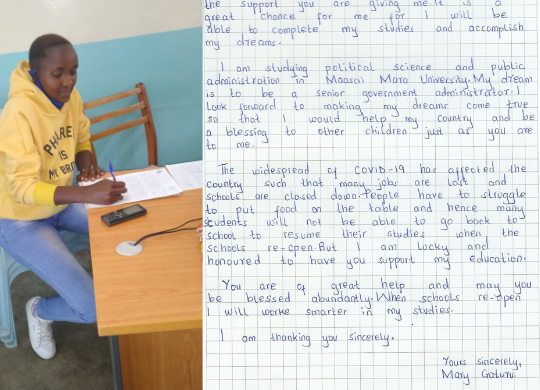 PHARRE
IS
MY BRO
the support you are giving me.It is a
great chance for me for I will be
able to complete my studies and accomplish
my dreams.
I am studying political science and public
administration in Maasai Mara University.My dream
is to be a senior government administrator.I
look forward to making my dreams come true
so that I would help my country and be
a blessing to other children just as you are
to me.
The widespread of COVID-19 has affected the
country such that many jobs are lost and
schools are closed down.People have to struggle
to put food on the table and hence many
students will not be able to go back to
school to resume their studies when the
schools re-open.But I am lucky and
honoured to have you support my education.
You are of great help and may you
be blessed abundantly.When schools re-open
I will worke smarter in my studies.
I am thanking you sincerely.
Yours sincerely,
Mary Gaturu.